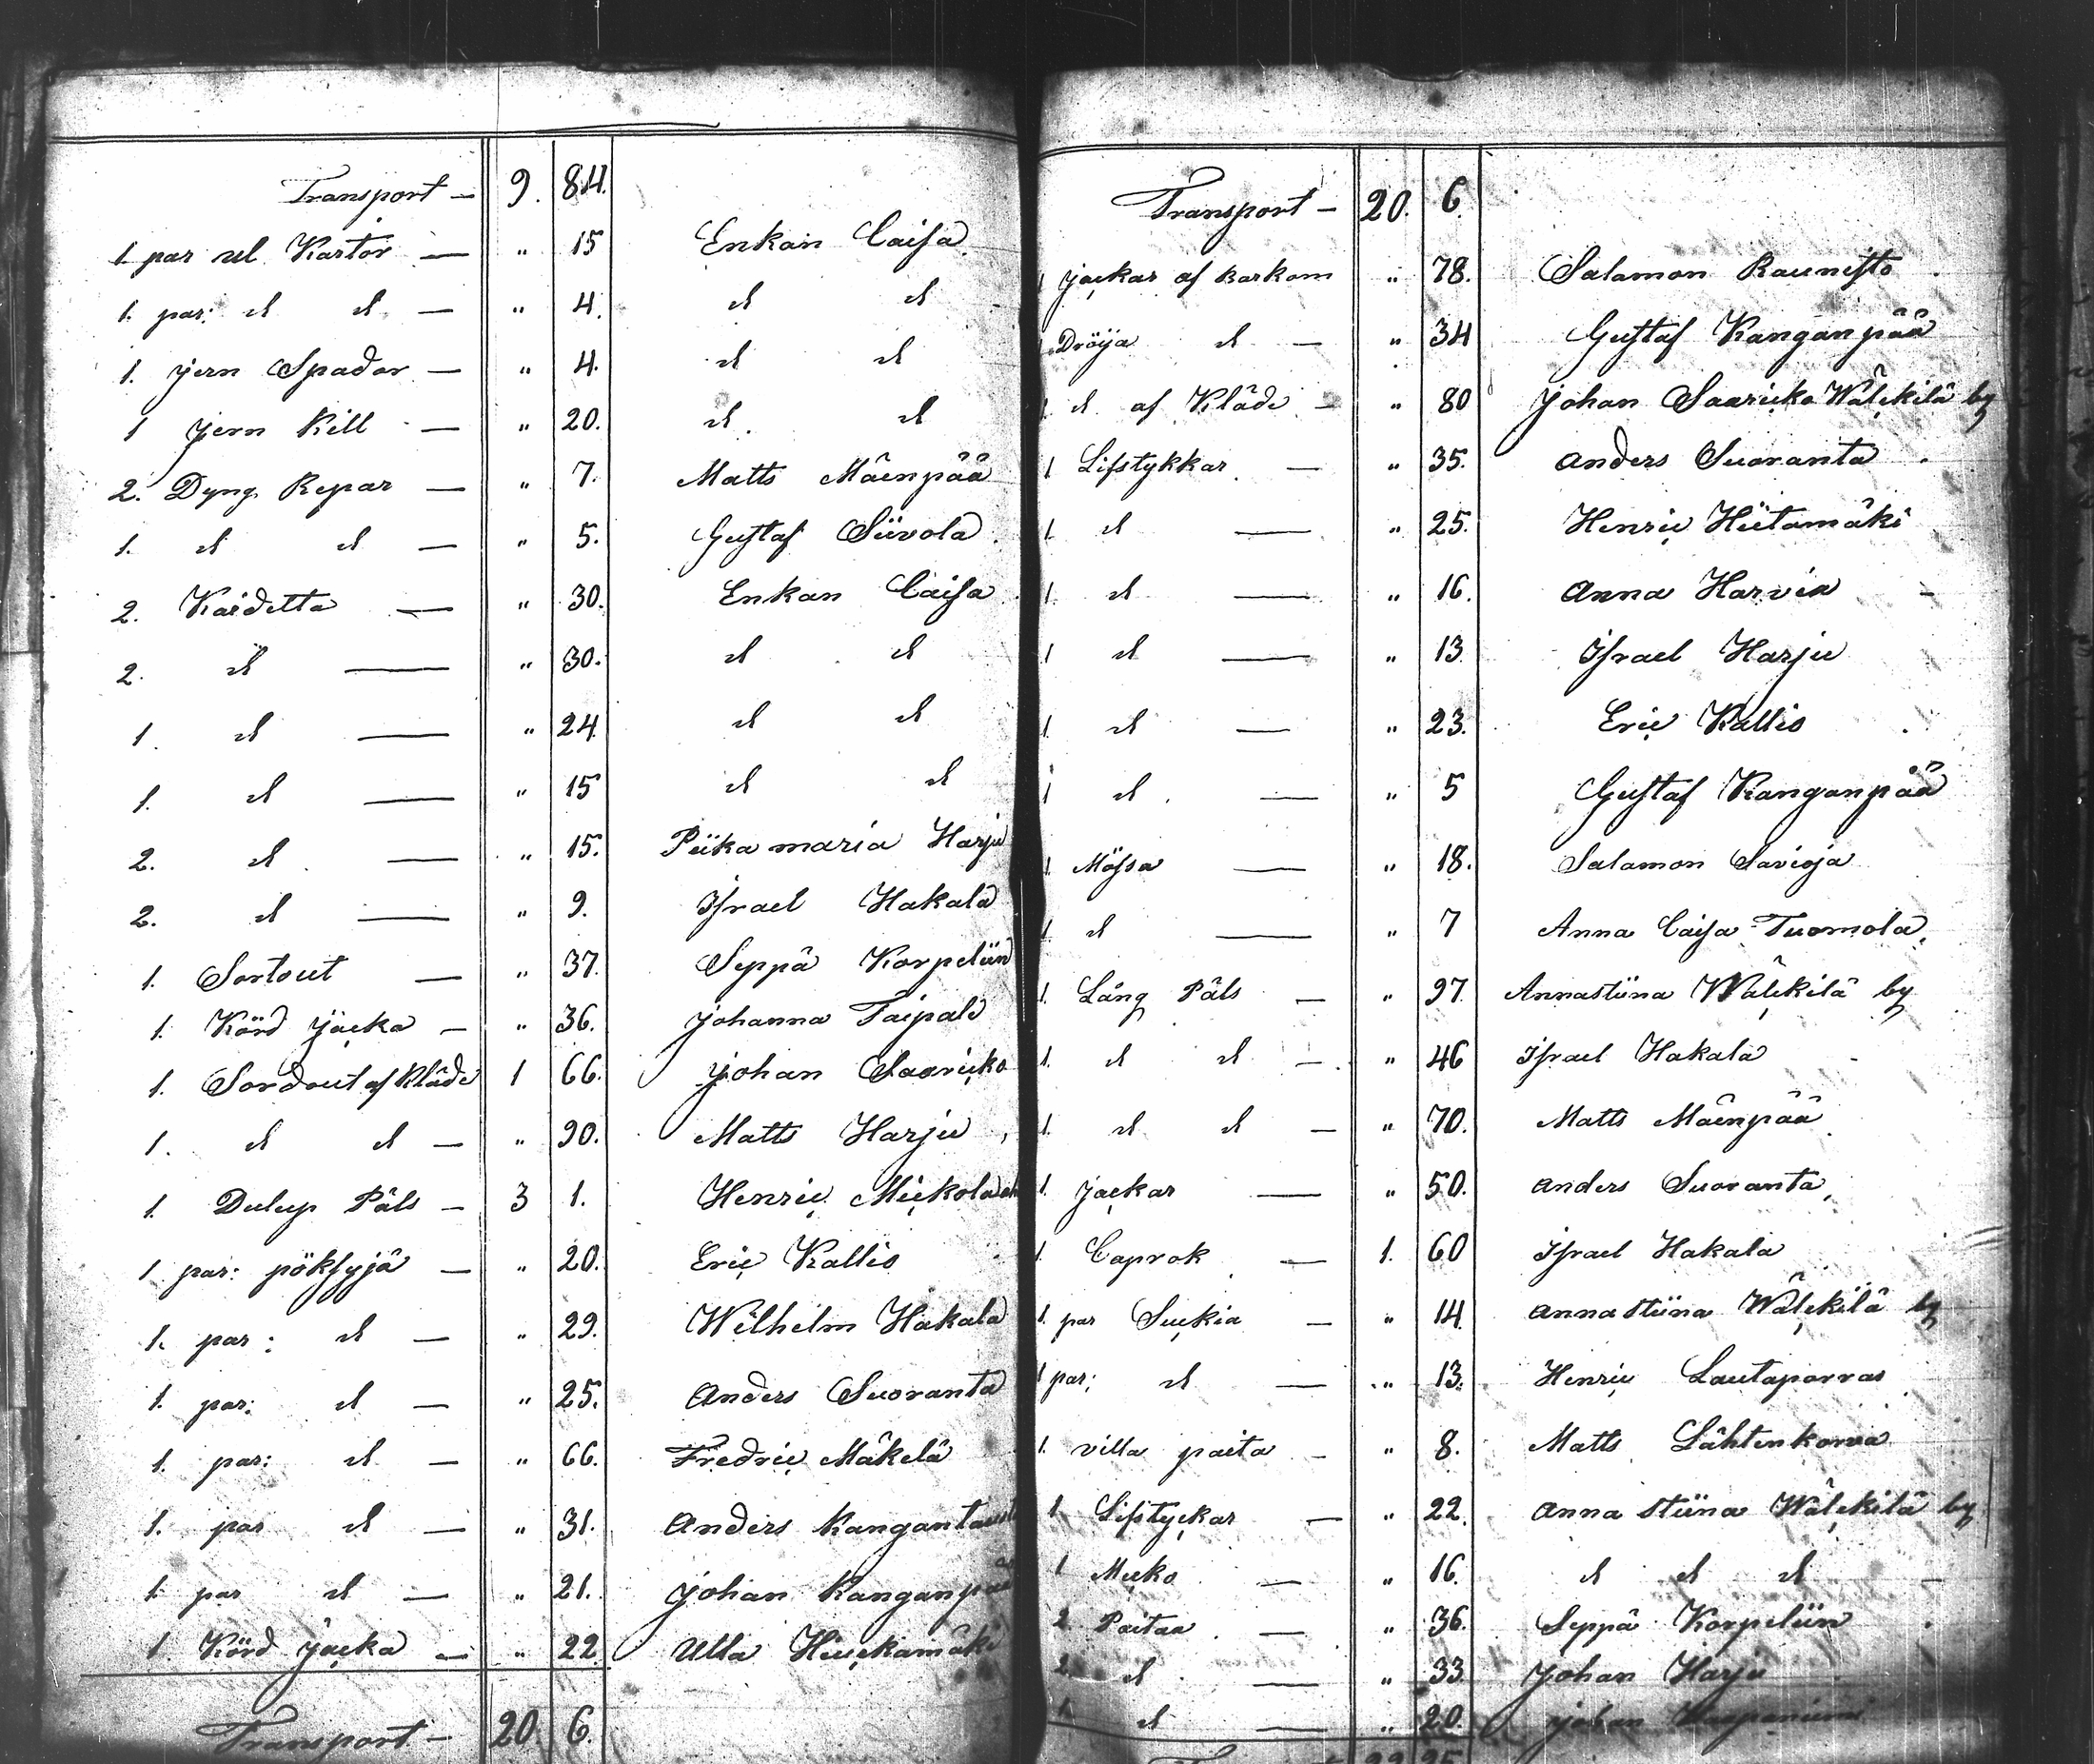 Transport — 9. 84.
1. par ul Kartor — " 15 Enkan Caisa
1. par: d d — " 4. d d
1. jern Spador — " 4. d d
1 jern Kill — " 20. d d
2. Dyng Repar — " 7. Matts Mäenpää
1. d d — " 5. Gustaf Siivola
2. Kaidetta — " 30. Enkan Caisa
2. d — " 30. d d
1. d — " 24. d d
1. d — " 15 d d
2. d — " 15. Piika maria Harju
2. d — " 9. Israel Hakala
1. Sortout — " 37. Seppä Korpeliin
1. Körd jacka — " 36. Johanna Taipale
1. Sordout af Kläde 1 66. Johan Saaricko
1. d d — " 90. Matts Harju
1. Dulup Päls — 3 1. Henric Mickola
1 par: pöksyjä — " 20. Eric Kallio
1. par: d — " 29. Wilhelm Hakala
1. par: d — " 25. Anders Suoranta
1. par: d — " 66. Fredric Mäkelä
1. par d — " 31. Anders Kangantaust
1. par d — " 21. Johan Kanganpää
1. Körd jacka — " 22. Ulla Hiuckamäki
Transport — 20. 6.
Transport — 20. 6.
1 jackar af Barkom " 78. Salamon Raunisto
1. Dröija d — " 34 Gustaf Kanganpää
1 d af Kläde — " 80 Johan Saaricko Wälckilä by
1 Lifstykkar — " 35. Anders Suoranta
1. d — " 25. Henric Hiitamäki
1. d — " 16. Anna Harvia
1 d — " 13 Israel Harju
1. d — " 23. Eric Kallio
1 d — " 5 Gustaf Kanganpää
1. Mössa — " 18. Salamon Savioja
1. d — " 7 Anna Caisa Tuomola
1. Lång Päls — " 97. Annastiina Wälckilä by
1. d d — " 46 Israel Hakala
1. d d — " 70. Matts Mäenpää
1. jackar — " 50. Anders Suoranta
1. Caprok — 1. 60 Israel Hakala
1. par Suckia — " 14 Anna Stiina Wälckilä by
1 par; d — " 13. Henric Lautaporras
1. villa paita — " 8. Matts Lähtenkorva
1 Lifstyckar — " 22. Anna Stiina Wälckilä by
1 Mucko — " 16. d d d
2 Paitaa — " 36. Seppä Korpeliin
2. d — " 33. Johan Harju
1. d — " 20. Johan